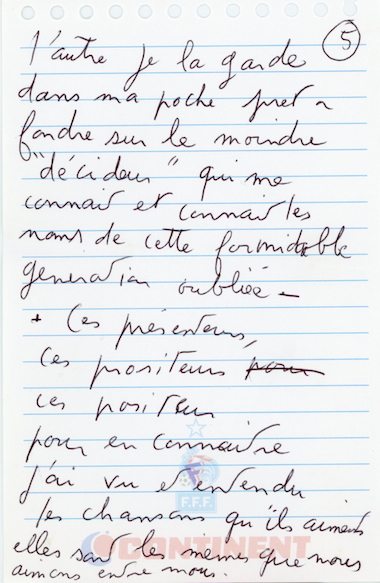 5
l'autre je la garde
dans ma poche pret a
fondre sur le moindre
"décideur" qui me
connait et connait les
noms de cette formidable
generation oubliée -
+ Ces présenteurs,
ces prositeurs pour
ces positeurs
pour en connaitre
j'ai vu et entendu
les chansons qu'ils aiment
elles sont les mêmes que nous
aimons entre nous.
F.F.F.
CONTINENT